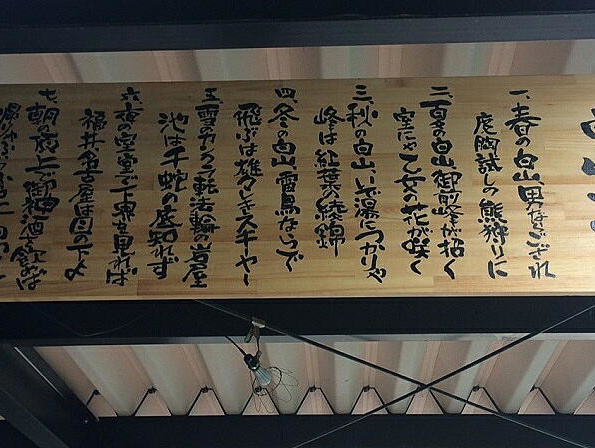 一、春の白山 男ならござれ
度胸試しの熊狩りに
二、夏の白山 御前峰が招く
室にゃ乙女の花が咲く
三、秋の白山、いで湯につかりゃ
峰は紅葉の綾錦
四、冬の白山 雷鳥ならで
飛ぶは雄々しきスキーヤー
五、雪の 転法輪岩屋
池は千蛇の底知れず
六、夜の室堂で下界を見れば
福井名古屋は目の下よ
七、朝の頂上で御神酒を飲めば